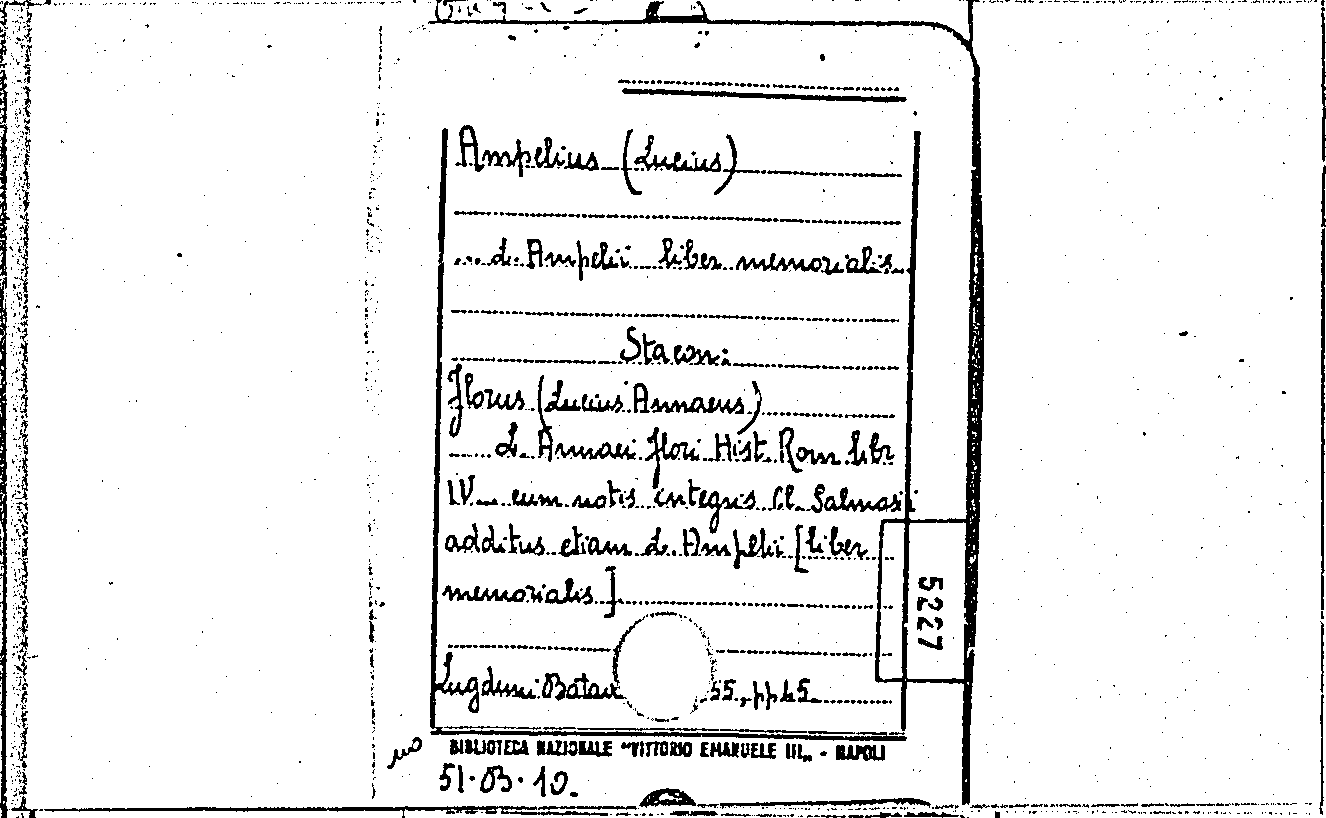 Ampelius (Lucius)
... L. Ampelii liber memorialis
Sta con:
Florus (Lucius Annaeus)
L. Annaei Flori Hist. Rom libr
IV... cum notis integris Cl. Salmasii
additus etiam L. Ampelii [liber
memorialis]
Lugduni Batav 55, pp 45
BIBLIOTECA NAZIONALE "VITTORIO EMANUELE III„ - NAPOLI
51.B.10.
5227